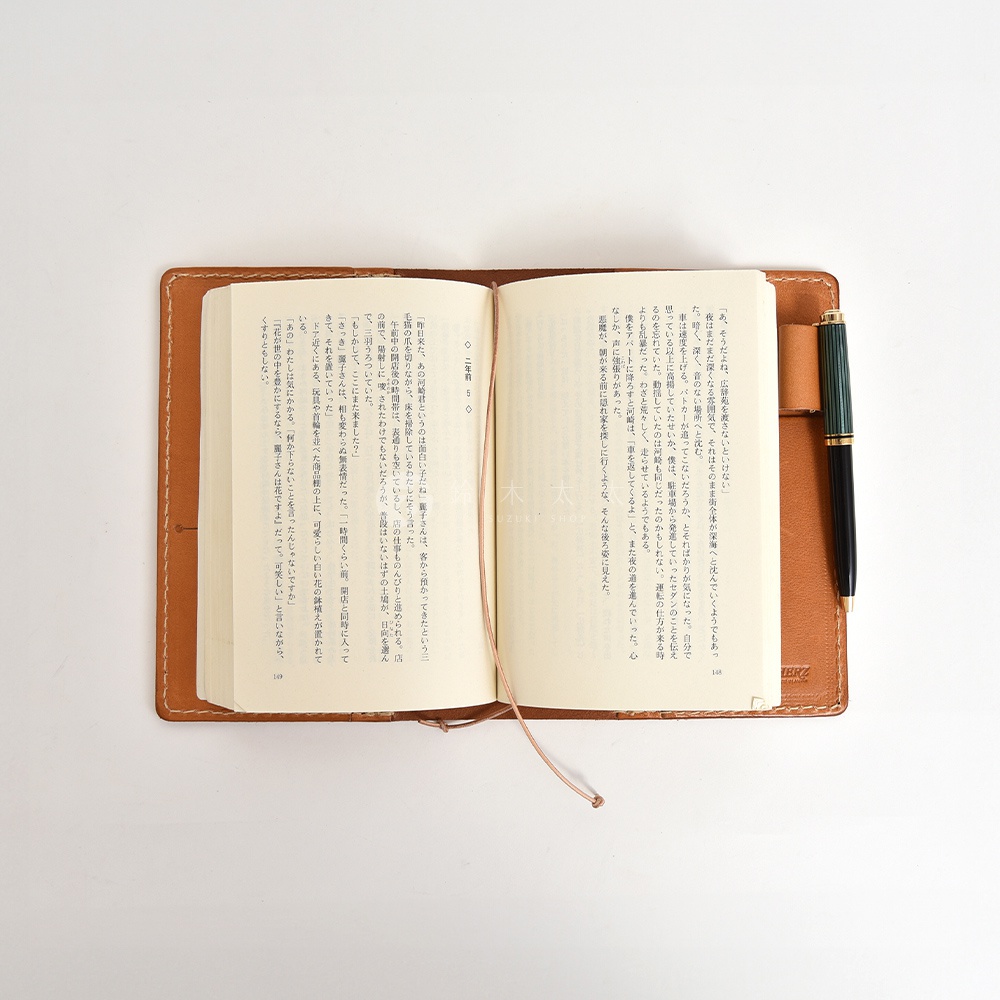 「あ、そうだよね、広辞苑を渡さないといけない」
夜はまだまだ深くなる雰囲気で、それはそのまま街全体が深海へと沈んでいくようでもあっ
た。暗く、深く、音のない場所へと沈む。
車は速度を上げる。パトカーが追ってこないだろうか、とそればかりが気になった。自分で
思っている以上に高揚していたせいか、僕は、駐車場から発進していったセダンのことを伝え
るのを忘れていた。動揺していたのは河崎も同じだったのかもしれない。運転の仕方が来る時
よりも乱暴だった。わざと荒々しく、走らせているようでもある。
僕をアパートに降ろすと河崎は、「車を返してくるよ」と、また夜の道を進んでいった。心
なしか、声に強張りがあった。
悪魔が、朝が来る前に隠れ家を探しに行くような、そんな後ろ姿に見えた。
148
◇ 二年前 5 ◇
「昨日来た、あの河崎君というのは面白い子だね」麗子さんは、客から預かってきたという三
毛猫の爪を切りながら、床を掃除しているわたしにそう言った。
午前中の開店後の時間帯は、表通りも空いているし、店の仕事ものんびりと進められる。店
の前で、陽射しに唆されたわけでもないだろうが、普段はいないはずの土鳩が、日向を選ん
で、三羽うろついていた。
「もしかして、ここにまた来ました？」
「さっき」麗子さんは、相も変わらぬ無表情だった。「一時間くらい前。開店と同時に入って
きて、それを置いていった」
ドア近くにある、玩具や首輪を並べた商品棚の上に、可愛らしい白い花の鉢植えが置かれて
いる。
「あの」わたしは気にかかる。「何か下らないことを言ったんじゃないですか」
「『花が世の中を豊かにするなら、麗子さんは花ですよ』だって。可笑しい」と言いながら、
くすりともしない。
149
HERZ